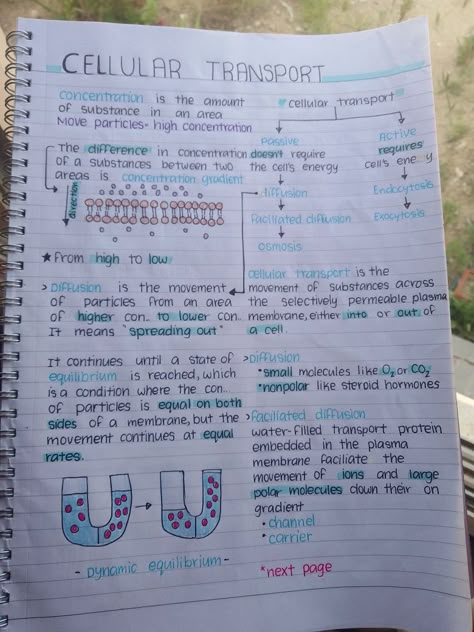 CELLULAR TRANSPORT
concentration is the amount
of substance in an area
Move particles= high concentration
The difference in concentration
of a substances between two
areas is concentration gradient
direction
★ from high to low
> Diffusion is the movement
of particles from an area
of higher con.. to lower con..
It means "spreading out"
It continues until a state of
equilibrium is reached, which
is a condition where the con...
of particles is equal on both
sides of a membrane, but the
movement continues at equal
rates.
- Dynamic equilibrium -
"cellular transport"
Passive
doesn't require
the cell's energy
diffusion
Facillated diffusion
osmosis
Active
requires
cell's ene y
Endocytosis
Exocytosis
cellular transport is the
movement of substances across
the selectively permeable plasma
membrane, either into or out of
a cell.
> Diffusion
•small molecules like O₂ or CO₂
•nonpolar like steroid hormones
> Facillated diffusion
water-filled transport protein
embedded in the plasma
membrane faciliate the
movement of ions and large
polar molecules down their on
gradient
• channel
• carrier
*next page